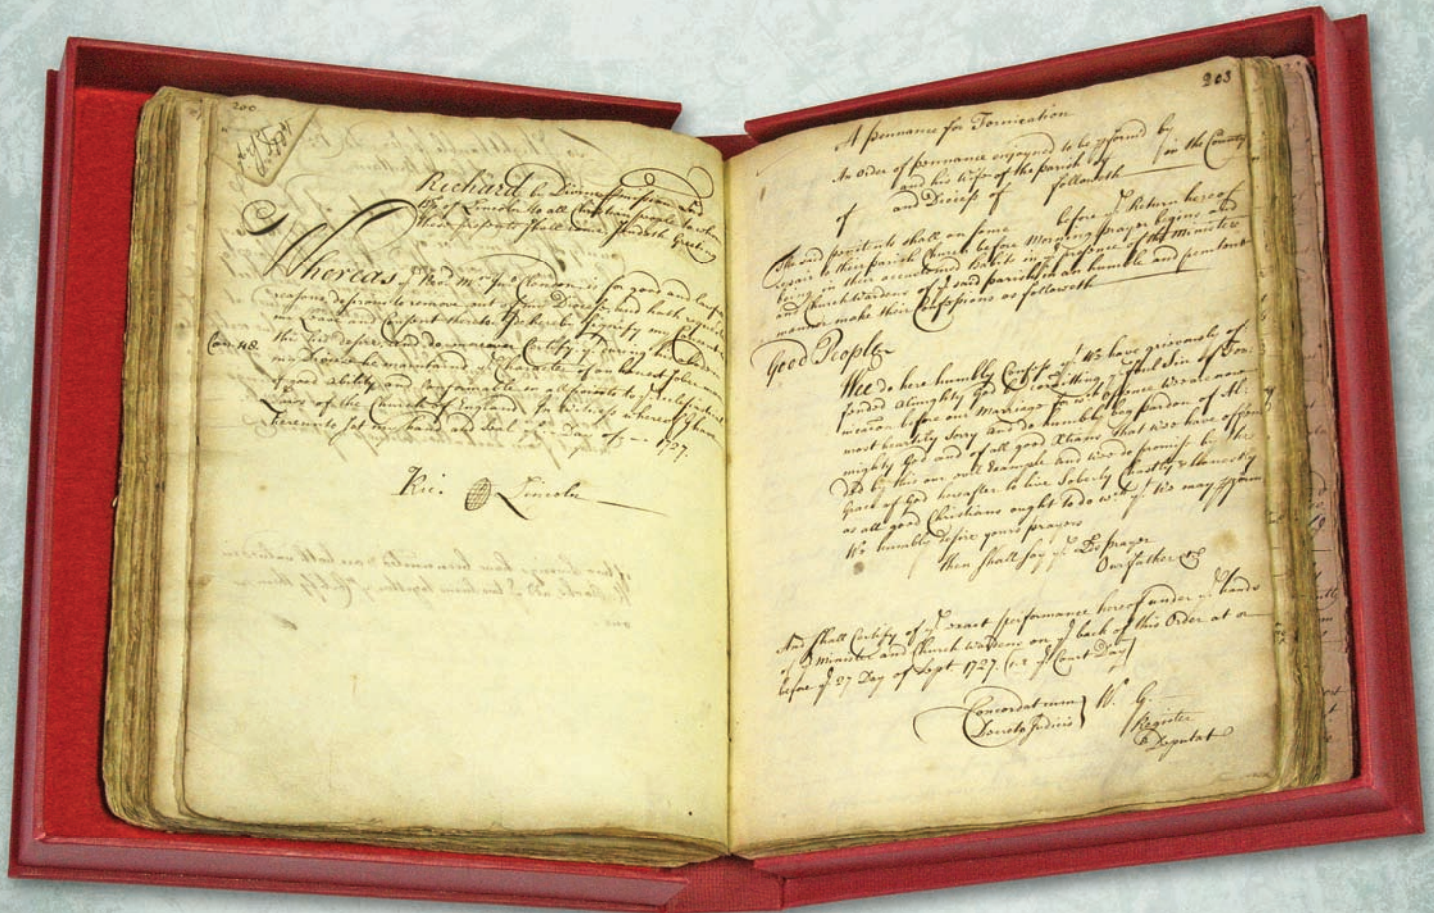 200
Richard by Divine Permission Lord
Bp of Lincoln to all Christian people to whom
these presents shall come sendeth Greeting
Whereas ye Revd Mr Jno is for good and lawfull
reasons desirous to remove out of my Diocess, and hath requested
my Leave and Consent thereto. I do hereby signify my Consent
Can: 48. to this his desire, and do moreover Certify yt during his abode in
my Diocess he maintained ye Character of an honest sober man
of good ability and conformable in all points to ye
of the Church of England In Witness whereof I have
hereunto set my hand and Seal this Day of 1727.
Ric: Lincoln
203
A pennance for Fornication
An order of pennance enjoyned to be pformed by
and his Wife of the parish of in the County
of and Diocess of followeth
The said penitents shall on some before ye Return hereof
repair to their parish Church before Morning prayer begins and
being in their accustomed habits in ye presence of the Minister
and Church Wardens of ye said parish in an humble and penitent
manner make their Confessions as followeth
Good People
Wee do here humbly Confess yt We have grievously of:
fended Almighty God in committing ye foul Sin of For:
nication before our Marriage for wch offence we are now
most heartily sorry and do humbly beg pardon of Al:
mighty God and of all good Xtians that wee have offen
ded by this our evil Example And wee do promise by the
Grace of God hereafter to live Soberly Chastly & honestly
as all good Christians ought to do wch yt We may pform
We humbly desire yours prayers
then shall say ye Lds prayer
Our father &c
And shall Certify of ye exact performance hereof under ye hands
of ye Minister and Church wardens on ye back of this Order at or
before ye 27 Day of Sept. 1727. (i.e ye Court Day)
Concordat cum
Decreto Judicis } W. G.
Register
Deputat